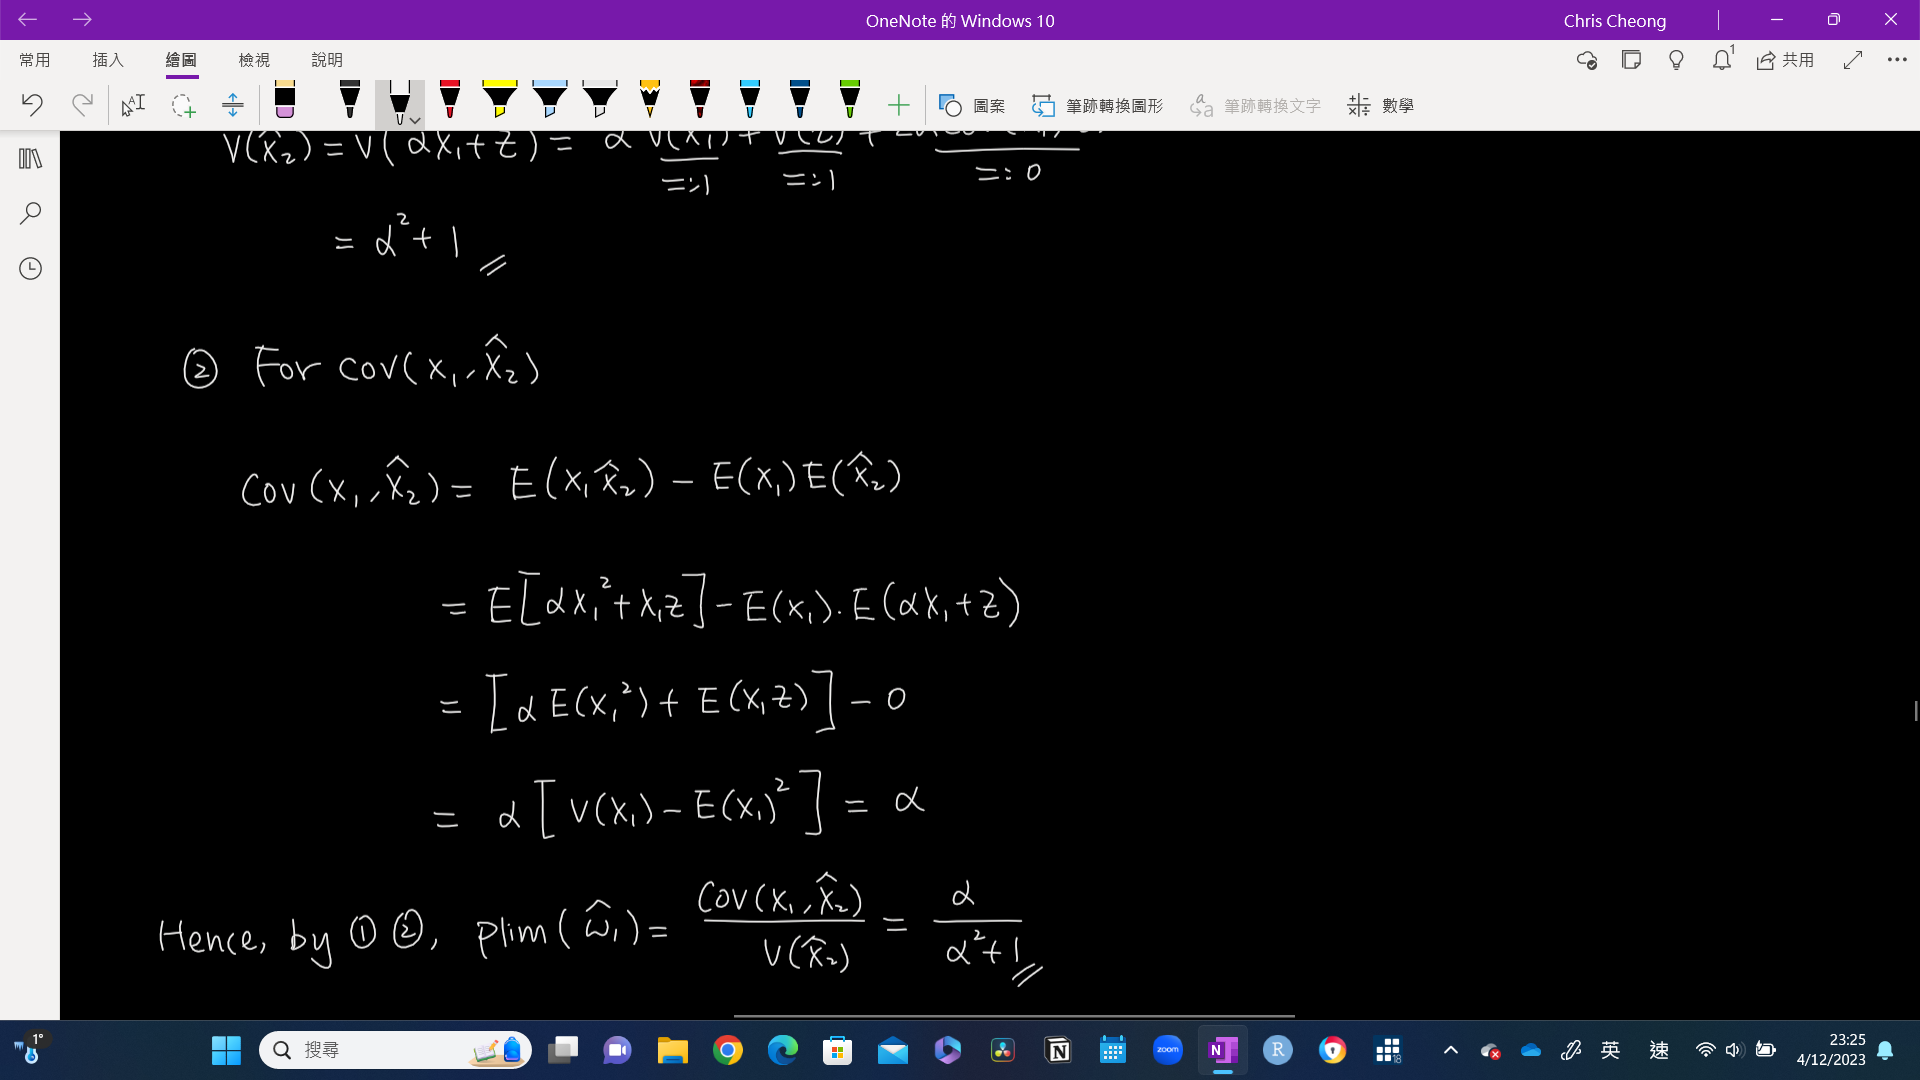 OneNote 的 Windows 10
Chris Cheong
常用 插入 繪圖 檢視 說明
1
共用
圖案 筆跡轉換圖形 筆跡轉換文字 數學
V(x̂₂) = V(αx₁+z) = α V(x₁) + V(z) +
=:1 =:1 =:0
= α²+1
② For cov(x₁, x̂₂)
Cov(x₁, x̂₂) = E(x₁x̂₂) − E(x₁)E(x̂₂)
= E[αx₁²+x₁z] − E(x₁)·E(αx₁+z)
= [αE(x₁²) + E(x₁z)] − 0
= α[V(x₁) − E(x₁)²] = α
Hence, by ① ②, plim(ω̂₁) = Cov(x₁, x̂₂) / V(x̂₂) = α / α²+1
1°
搜尋
zoom
N
R
18
英
速
23:25
4/12/2023